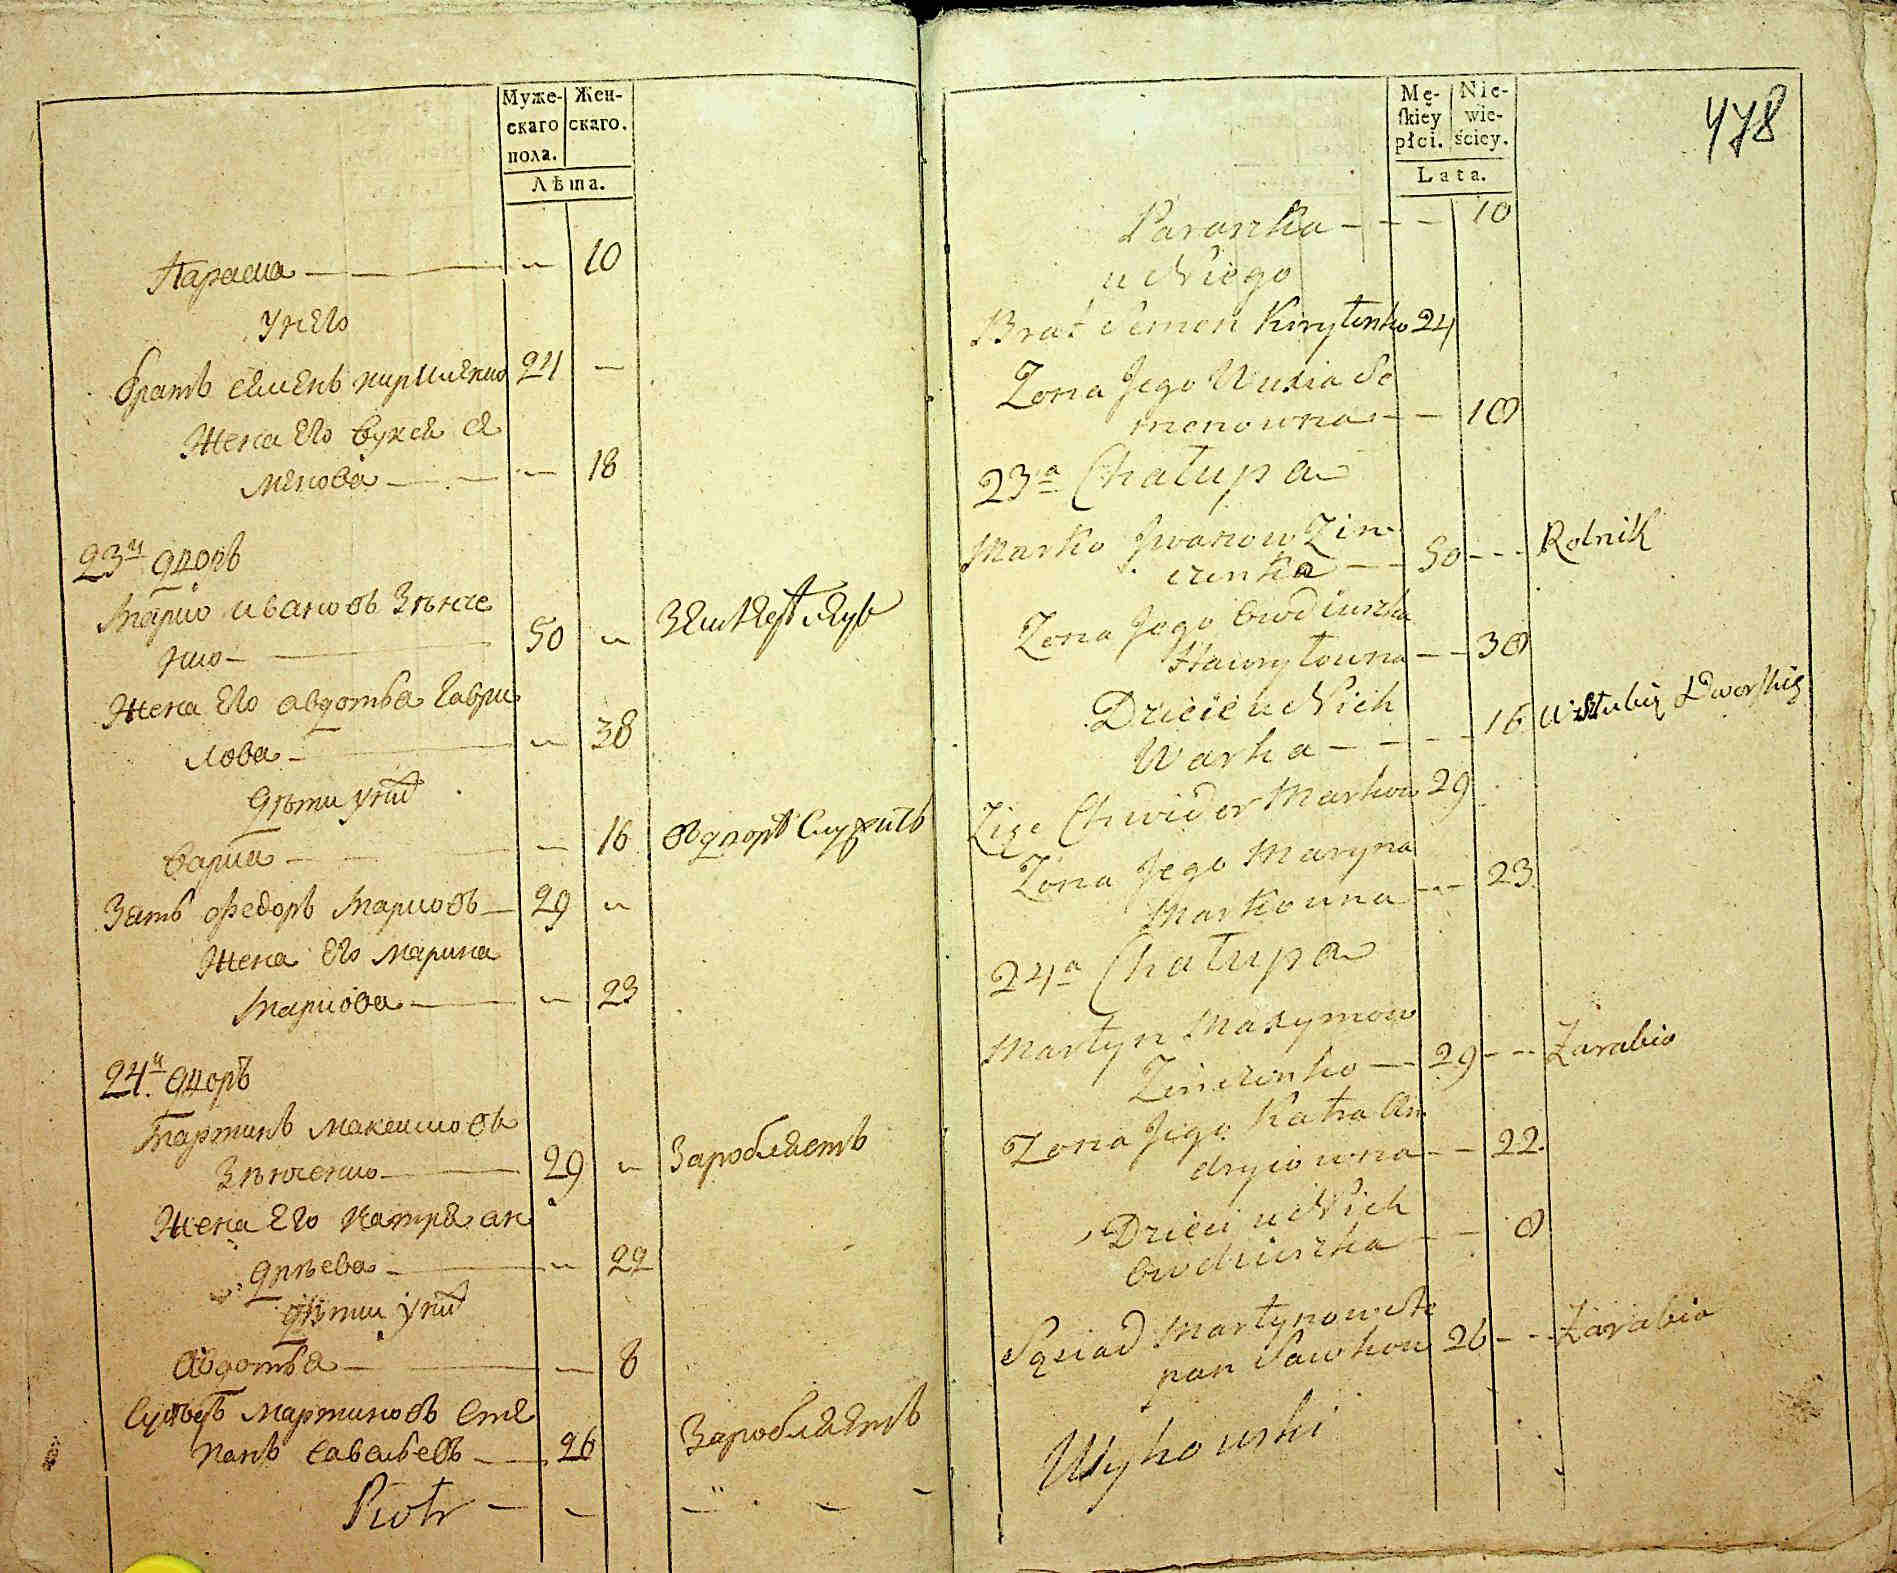 Муже-
скаго
пола.
Жен-
скаго.
Лѣта.
Параска — — „ 10
У него
братъ Семенъ Кириленко 24 —
Жена Его Вукса Се
менова — — „ 18
23й дворъ
Марко Ивановъ Зѣнче
нко — 50 „
Жена Его Авдотья Гаври
лова — „ 38
дѣти у них
Варка — — 16 въ дворѣ служитъ
Зять Федоръ Марковъ — 29 „
Жена Его Марина
Маркова — „ 23
24й дворъ
Мартинъ Максимовъ
Зѣнченко — 29 „ Заробляетъ
Жена Его Катря Ан
дрѣева — „ 22
дѣти у них
Авдотья — — 8
Сусѣдъ Мартиновъ Сте
панъ Савельевъ — 26 Заробляетъ
Piotr — —
Mę-
ſkiey
płci.
Nie-
wie-
ściey.
Lata.
478
Paraszka — — — 10
u Niego
Brat Semen Kiryłenko 24
Żona Jego Wuxia Se
menowna — — 18
23a Chałupa
Marko Jwanow Zin
czenko — — 50 — — Rolnik
Żona Jego Owdiuszka
Hawryłowna — — 38
Dzieci u Nich
Warka — — — 16 w Służbie Dworskiey
Zięć Chwidor Markow 29
Żona Jego Maryna
Markowna — — 23
24a Chałupa
Martyn Maxymow
Zinczenko — 29 — — Zarabia
Żona Jego Katra An
dryiowna — — 22
Dzieci u Nich
Owdiuszka — — 8
Sąsiad Martynow Ste
pan Sawkow 26 — — Zarabia
Wykowski